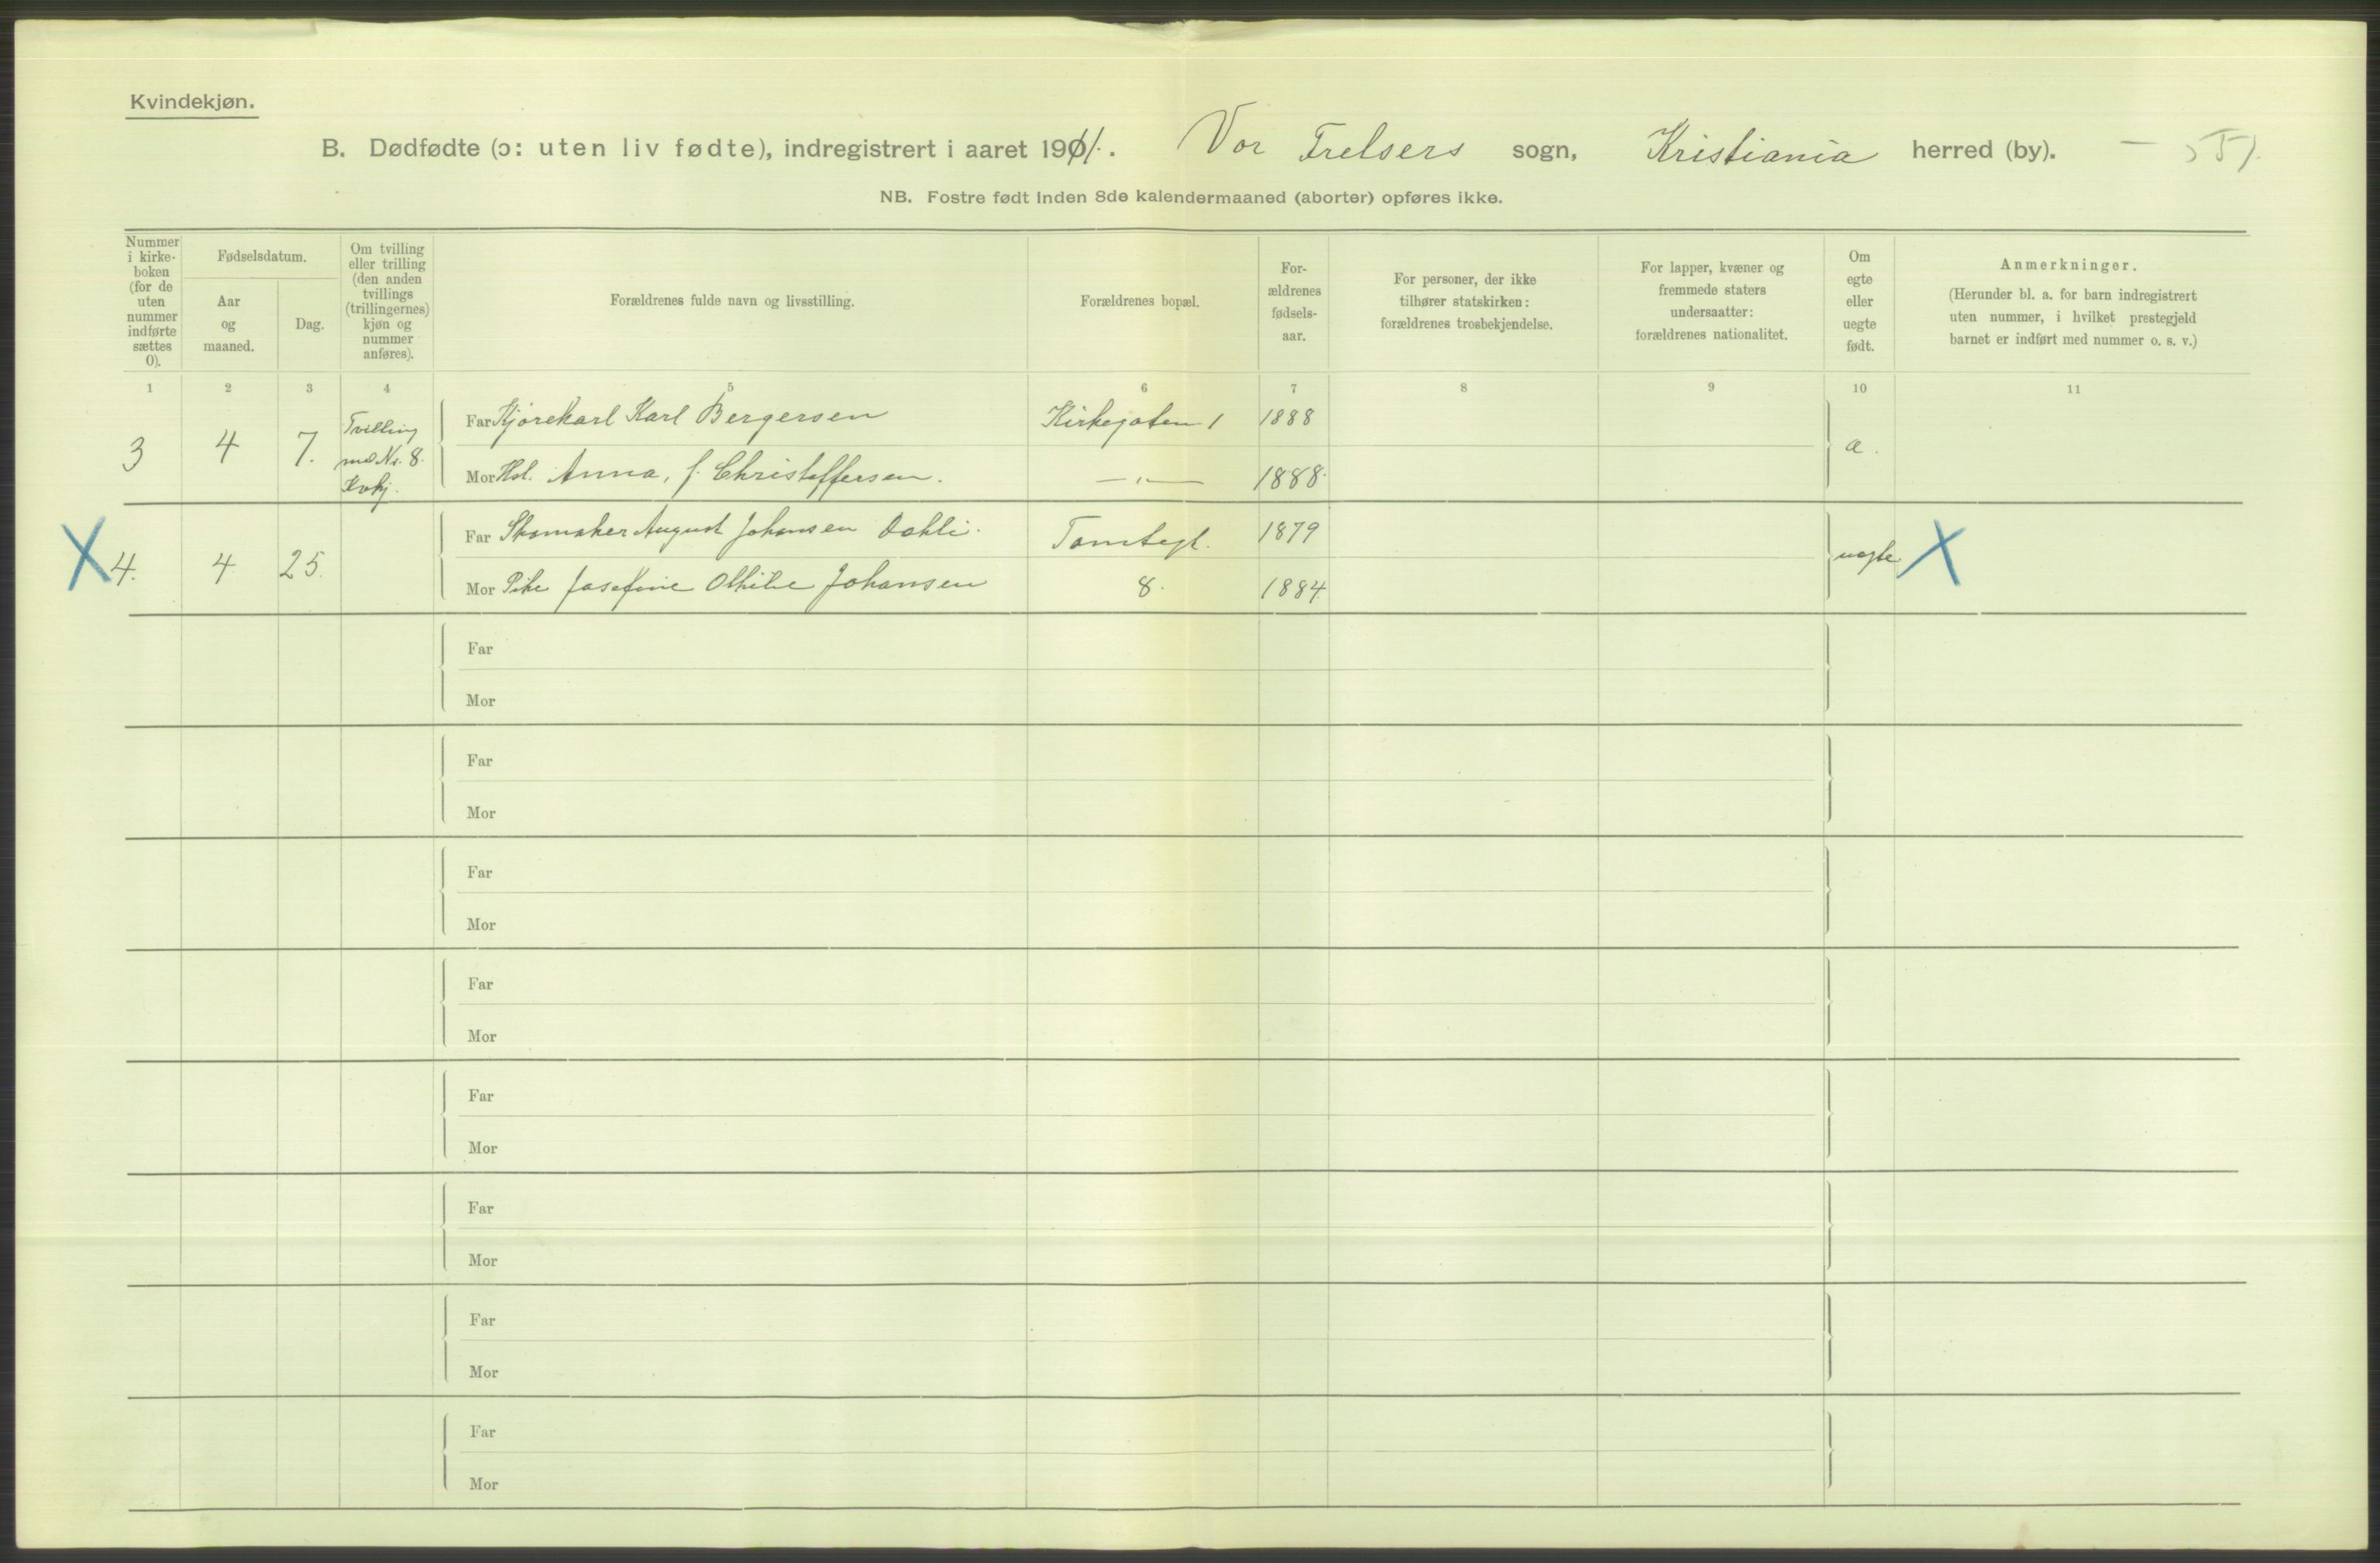 Kvindekjøn.
B. Dødfødte (ɔ: uten liv fødte), indregistrert i aaret 1911. Vor Frelsers sogn, Kristiania herred (by).
NB. Fostre født inden 8de kalendermaaned (aborter) opføres ikke.
Nummer i kirke-
boken
(for de
uten
nummer
indførte
sættes
0).
Fødselsdatum.
Aar
og
maaned.
Dag.
Om tvilling
eller trilling
(den anden
tvillings
(trillingernes)
kjøn og
nummer
anføres).
Forældrenes fulde navn og livsstilling.
Forældrenes bopæl.
For-
ældrenes
fødsels-
aar.
For personer, der ikke
tilhører statskirken:
forældrenes trosbekjendelse.
For lapper, kvæner og
fremmede staters
undersaatter:
forældrenes nationalitet.
Om
egte
eller
uegte
født.
Anmerkninger.
(Herunder bl. a. for barn indregistrert
uten nummer, i hvilket prestegjeld
barnet er indført med nummer o. s. v.)
1 2 3 4 5 6 7 8 9 10 11
3 4 7. Tvilling
med Nr. 8.
Kvkj.
Far Kjørekarl Karl Bergersen Kirkegaten 1 1888
Mor Hst. Anna, f. Christoffersen. —"— 1888.
X 4. 4 25.
Far Skomaker August Johansen Dahli. Tomtegt. 1879 uegte X
Mor Pike Josefine Othilie Johansen 8. 1884
Far
Mor
Far
Mor
Far
Mor
Far
Mor
Far
Mor
Far
Mor
Far
Mor
Far
Mor